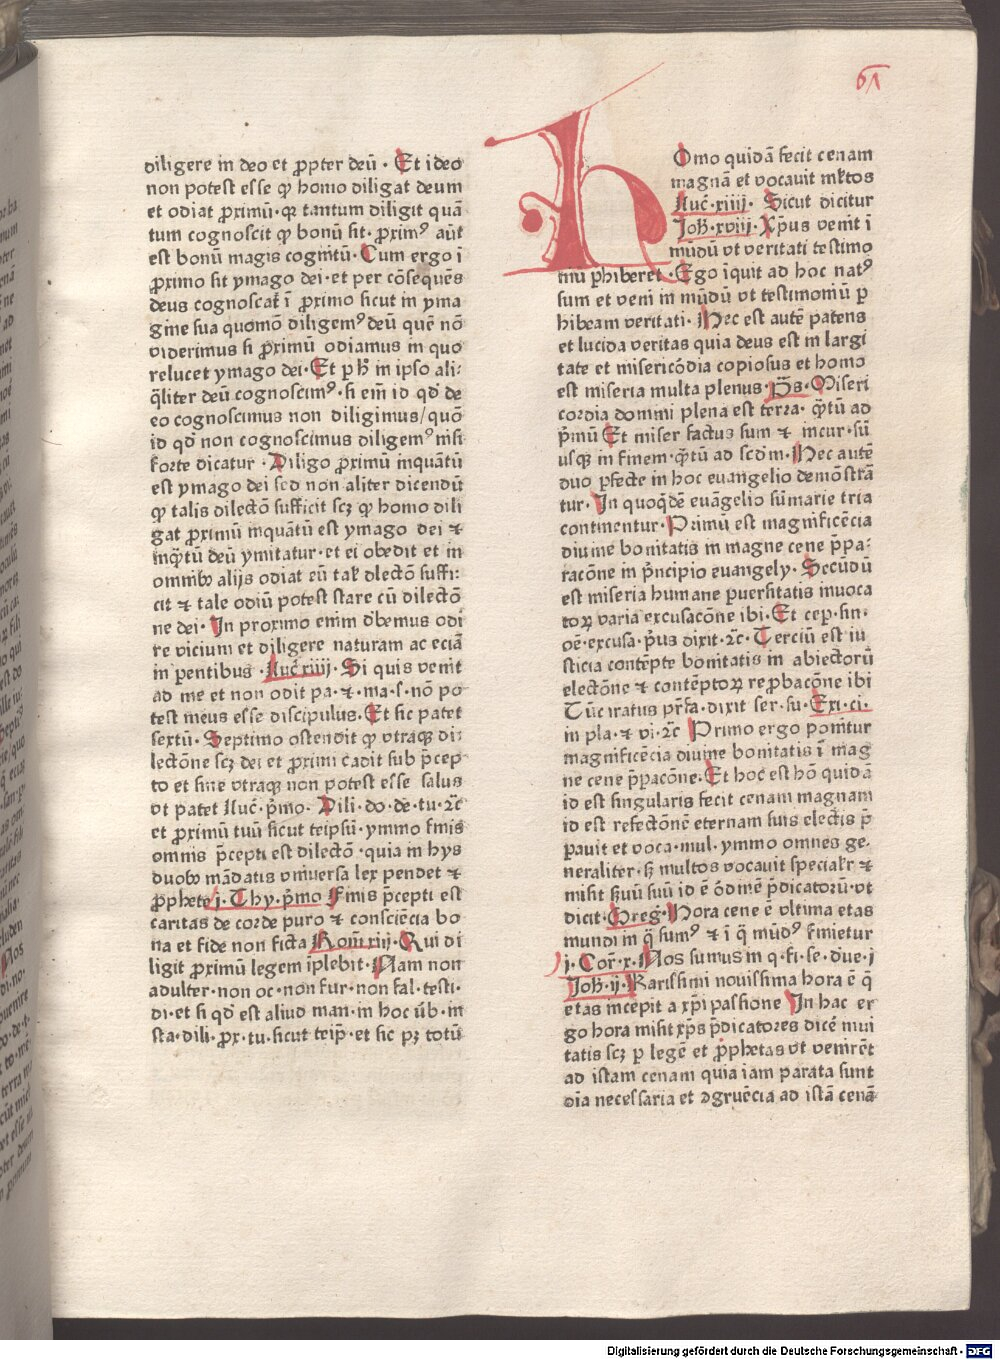 61
diligere in deo et ꝓpter deū · Et ideo
non potest esse ꝙ homo diligat deum
et odiat ꝓximū · qꝛ tantum diligit quā
tum cognoscit ꝙ bonū sit · ꝓximꝰ aūt
est bonū magis cognitū · Cum ergo ī
ꝓximo sit ymago dei · et per cōsequēs
deus cognoscat̄ ī ꝓximo sicut in yma
gine sua quomō diligemꝰ deū quē nō
viderimus si ꝓximū odiamus in quo
relucet ymago dei · Et ꝑ hͦ in ipso ali⸗
q̄liter deū cognoscimꝰ · si em̄ id qd̄ de
eo cognoscimus non diligimus / quō
id qd̄ non cognoscimus diligemꝰ nisi
forte dicatur · Diligo ꝓximū inquātū
est ymago dei sed non aliter dicendū
ꝙ talis dilectō sufficit scꝫ ꝙ homo dili
gat ꝓximū inquātū est ymago dei ⁊
inq̄tū deū ymitatur · et ei obedit et in
omnibꝰ alijs odiat eū tal̄ dlectō suffi⸗
cit ⁊ tale odiū potest stare cū dilectō
ne dei · In proximo enim dēbemus odi
re vicium et diligere naturam ac eciā
in pentibus · Luc̄ xiiij · Si quis venit
ad me et non odit pa · ⁊ · ma · s · nō po
test meus esse discipulus · Et sic patet
sextū · Septimo ostendit ꝙ vtraqꝫ di⸗
lectōne scꝫ dei et ꝓximi cadit sub p̄cep
to et sine vtraqꝫ non potest esse salus
vt patet Luc̄ · p̄mo · Dili · do · de · tu · ⁊c̄
et ꝓximū tuū sicut teipsū · ymmo finis
omnis p̄cepti est dilectō · quia in hys
duobꝰ mādatis vniuersa lex pendet ⁊
ꝓphete j · Thy · p̄mo Finis p̄cepti est
caritas de corde puro ⁊ consciēcia bo
na et fide non ficta Rom̄ xiij · Qui di
ligit ꝓximū legem iplebit · Nam non
adulter · non oc · non fur · non fal · testi ·
di · et si qd̄ est aliud man · in hoc v̄b · in
sta · dili · ꝓx · tu · sicut teip̄ · et sic pꝫ totū
HOmo quidā fecit cenam
magnā et vocauit ml̄tos
Luc̄ · xiiij · Sicut dicitur
Joh̄ · xviij · Xp̄us venit ī
mūdū vt veritati testimo
niū ꝑhiberet · Ego īquit ad hoc natꝰ
sum et veni in mūdū vt testimoniū ꝑ
hibeam veritati · Hec est autē patens
et lucida veritas quia deus est in largi
tate et misericōdia copiosus et homo
est miseria multa plenus · Ps̄ · Miseri
cordia domini plena est terra · q̄tū ad
p̄mū Et miser factus sum ⁊ incur · sū
usqꝫ in finem · q̄tū ad scd̄m · Hec autē
duo ꝑfecte in hoc euangelio demōstrā
tur · In quoqꝫ dē euāgelio sūmarie tria
continentur · Primū est magnificēcia
diuine bonitatis in magne cene p̄pa⸗
racōne in p̄ncipio euangely · Secūdū
est miseria humane ꝑuersitatis inuoca
toꝝ varia excusacōne ibi · Et cep · sin ·
oē · excusa · p̄us dixit · ⁊c̄ · Terciū est iu
sticia contēpte bonitatis in abiectorū
electōne ⁊ contēptoꝝ reꝓbacōne ibi
Tūc iratus pr̄fa · dixit ser · su · Exi · ci ·
in pla · ⁊ vi · ⁊c̄ Primo ergo ponit̄ur
magnificēcia diuine bonitatis ī mag
ne cene p̄pacōne · Et hoc est hō quidā
id est singularis fecit cenam magnam
id est refectōnē eternam suis electis p̄
pauit et voca · mul · ymmo omnes ge⸗
neraliter · sꝫ multos vocauit specialr̄ ⁊
misit ẜuū suū id ē ōdinē p̄dicatorū · vt
dicit · Greḡ · Hora cene ē vltima etas
mundi in q̄ sumꝰ ⁊ ī q̄ mūdꝰ finietur
j · Cor̄ · x · Nos sumus in q · fi · se · due · j
Joh̄ · ij · Karissimi nouissima hora ē q̄
etas incepit a xp̄i passione In hac er
go hora misit xp̄s p̄dicatores dicē nui
tatis scꝫ ꝑ legē et ꝓphetas vt venirēt
ad istam cenam quia iam parata sunt
oīa necessaria et ꝯgruēcia ad istā cenā
Digitalisierung gefördert durch die Deutsche Forschungsgemeinschaft - DFG